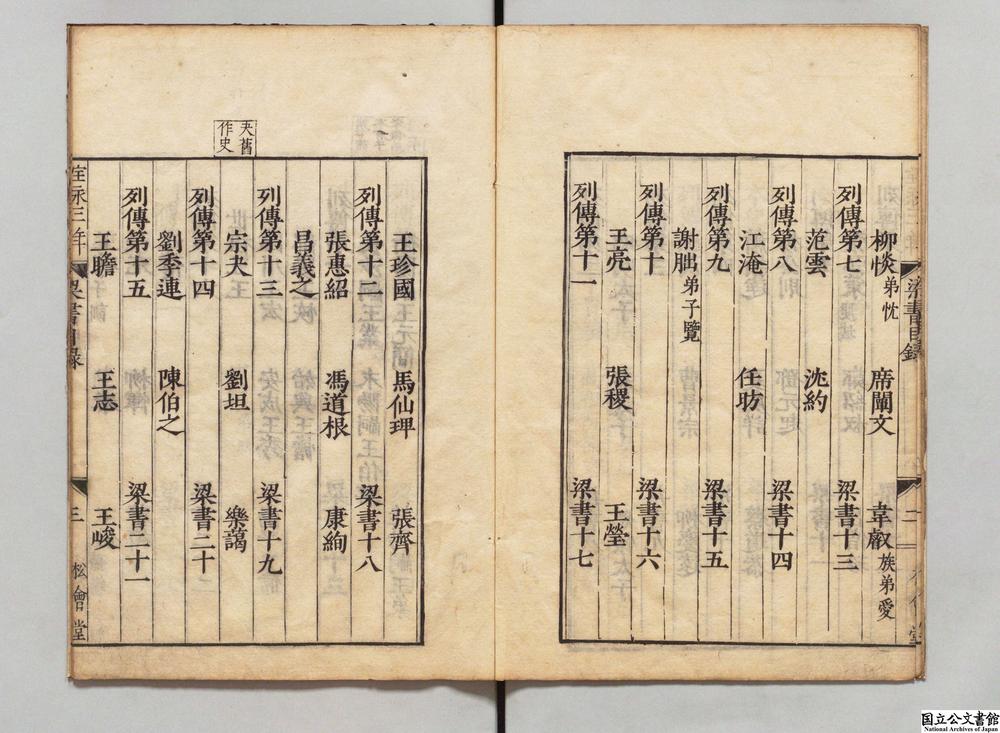 梁書目錄
二
柳惔弟忱 席闡文 韋叡族弟愛
列傳第七 梁書十三
范雲 沈約
列傳第八 梁書十四
江淹 任昉
列傳第九 梁書十五
謝朏弟子覽
列傳第十 梁書十六
王亮 張稷 王瑩
列傳第十一 梁書十七
王珍國 馬仙琕 張齊
列傳第十二 梁書十八
張惠紹 馮道根 康絢
昌義之
列傳第十三 梁書十九
夬舊
作史
宗夬 劉坦 樂藹
列傳第十四 梁書二十
劉季連 陳伯之
列傳第十五 梁書二十一
王瞻 王志 王峻
宝永三年 梁書目錄 三 松會堂
国立公文書館
National Archives of Japan